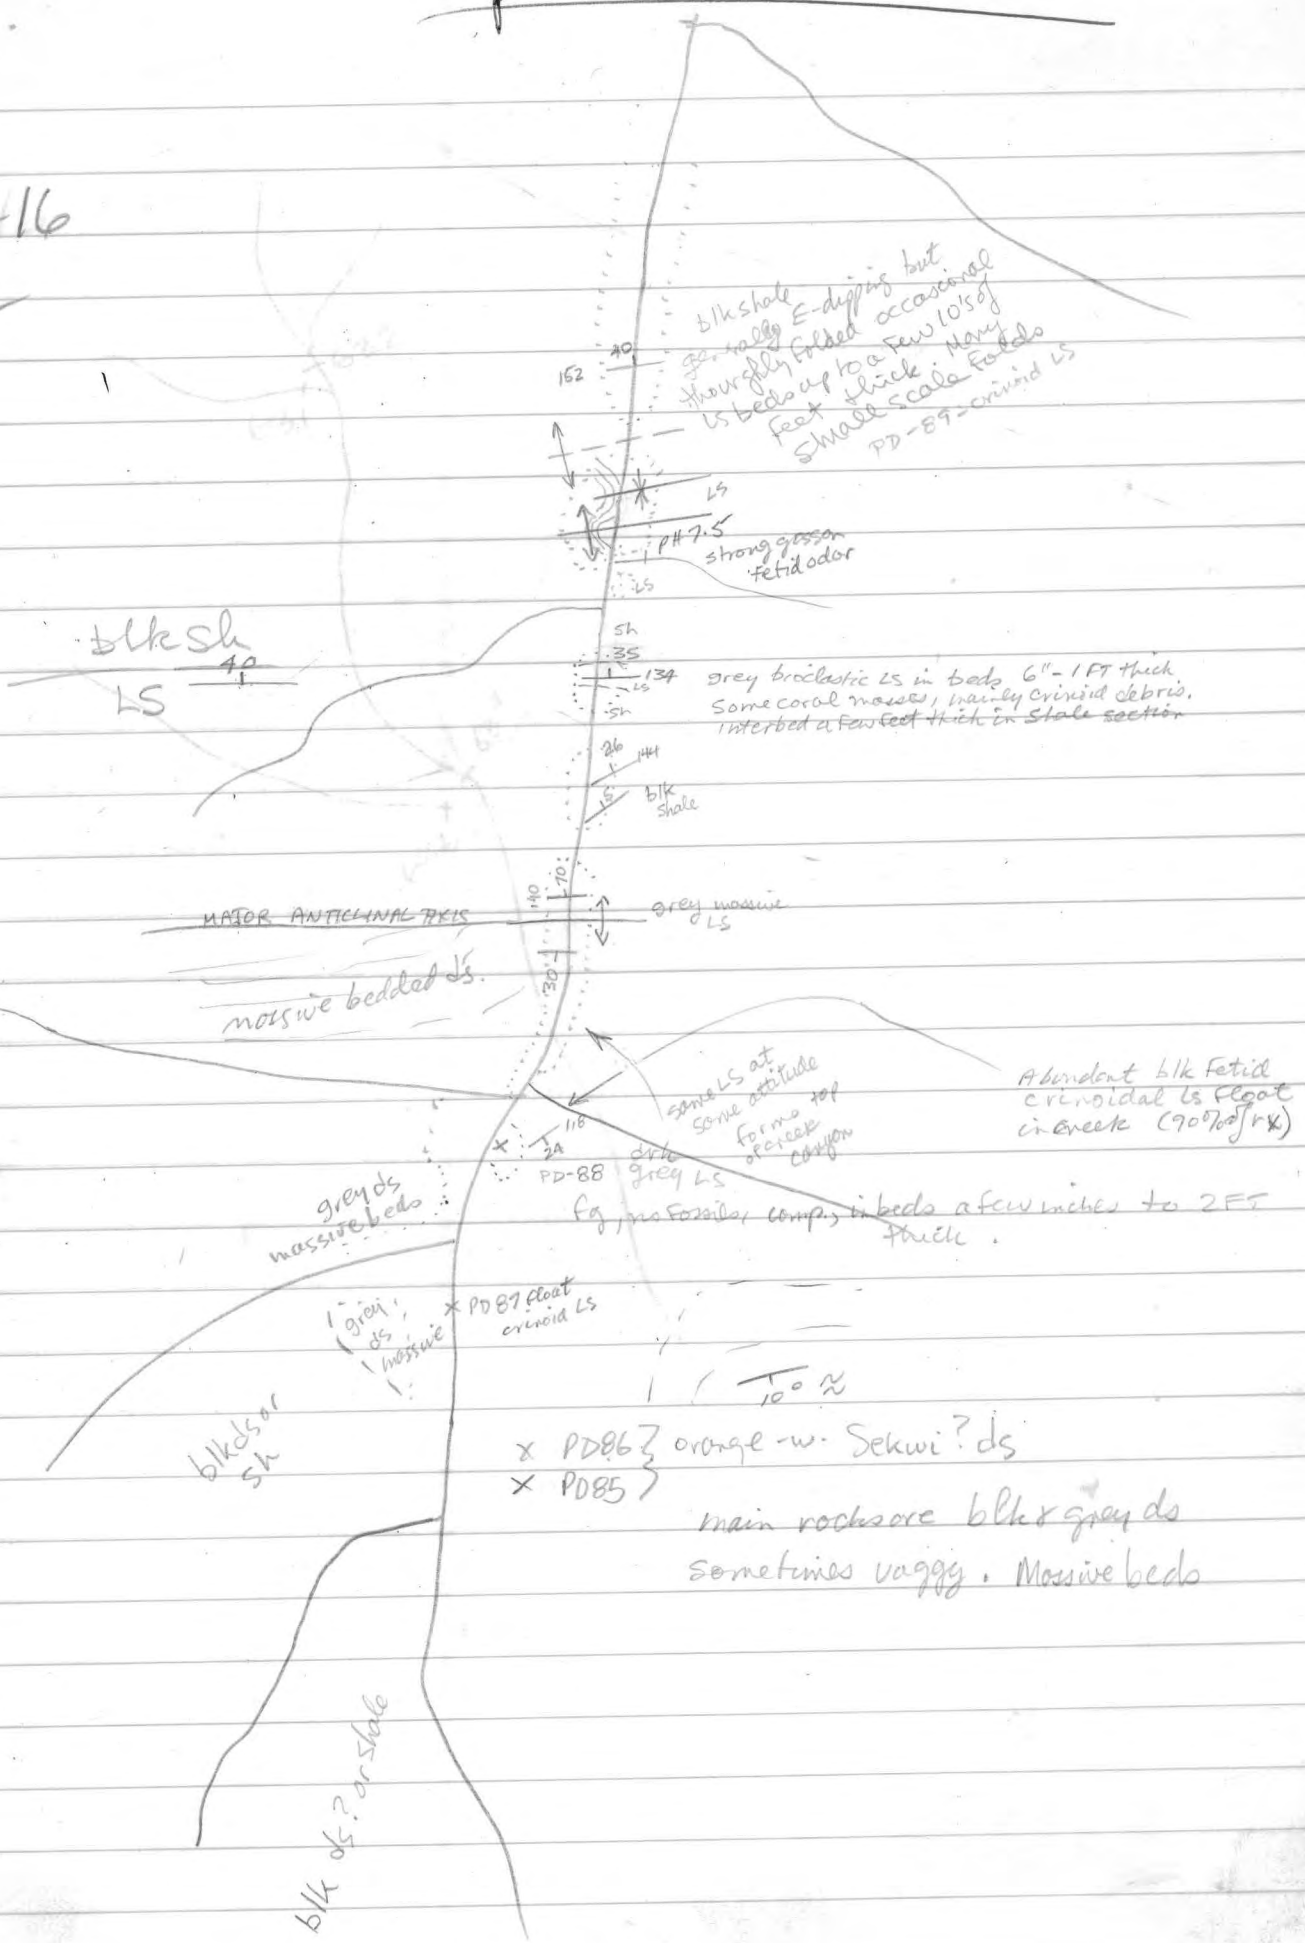 -16
blk shale
generally E-dipping but
thourghly folded occasional
LS beds up to a few 10's of
feet thick. Many
small scale folds
PD-89-crinoid LS
40
152
LS
PH 7.5
strong gossan
fetid odor
LS
blk sh
40
LS
sh
35
134
LS
sh
grey bioclastic LS in beds 6"-1 FT thick
some coral masses, mainly crinoid debris.
interbed a few feet thick in shale section
26
144
15
blk
shale
140
70
MAJOR ANTICLINAL AXIS
grey massive
LS
30
massive bedded ds.
same LS at
same attitude
forms top
of creek
canyon
Abundant blk fetid
crinoidal LS float
in creek (90% of rx)
116
24
PD-88
drk
grey LS
fg, no fossils, comp., in beds a few inches to 2 FT
thick.
grey ds
massive beds
PD87 float
crinoid LS
grey
ds
massive
10° ≈
blk ds or
sh
x PD86 } orange-w. Sekwi? ds
x PD85 }
main rocks are blk & grey ds
sometimes vuggy. Massive beds
blk ds? or shale